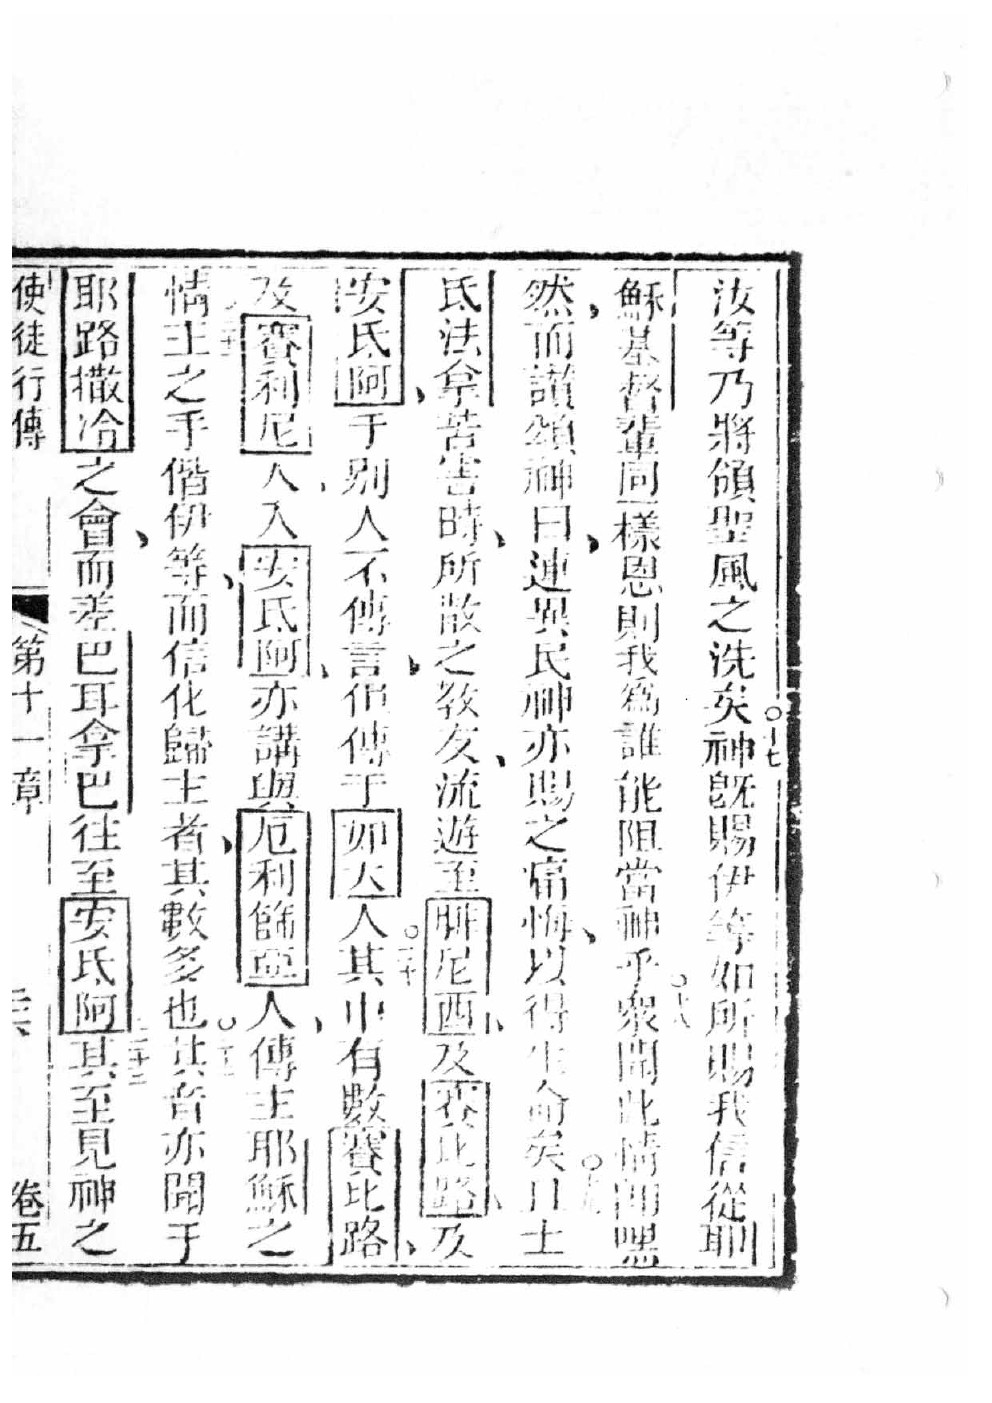 汝等乃將領聖風之洗矣○十七神旣賜伊等如所賜我信從耶
穌基督輩同一樣恩則我爲誰能阻當神乎○十八衆聞此情卽嘿
然而讚頌神曰連異民神亦賜之痛悔以得生命矣○十九且士
氐法拿苦害時所散之教友流遊至腓尼西及賽比路及
安氐阿于别人不傳言但傳于如大人○二十其中有數賽比路
及賽利尼人入安氐阿亦講與厄利篩亞人傳主耶穌之
情主之手偕伊等而信化歸主者其數多也○其音亦聞于
耶路撒冷之會而差巴耳拿巴往至安氐阿二十三其至見神之
使徒行傳 第十一章 卷五